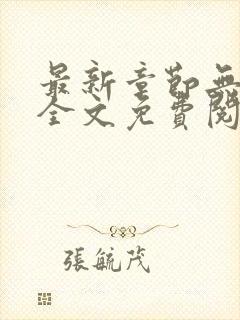 最新章節無
全文免費閱
張毓茂